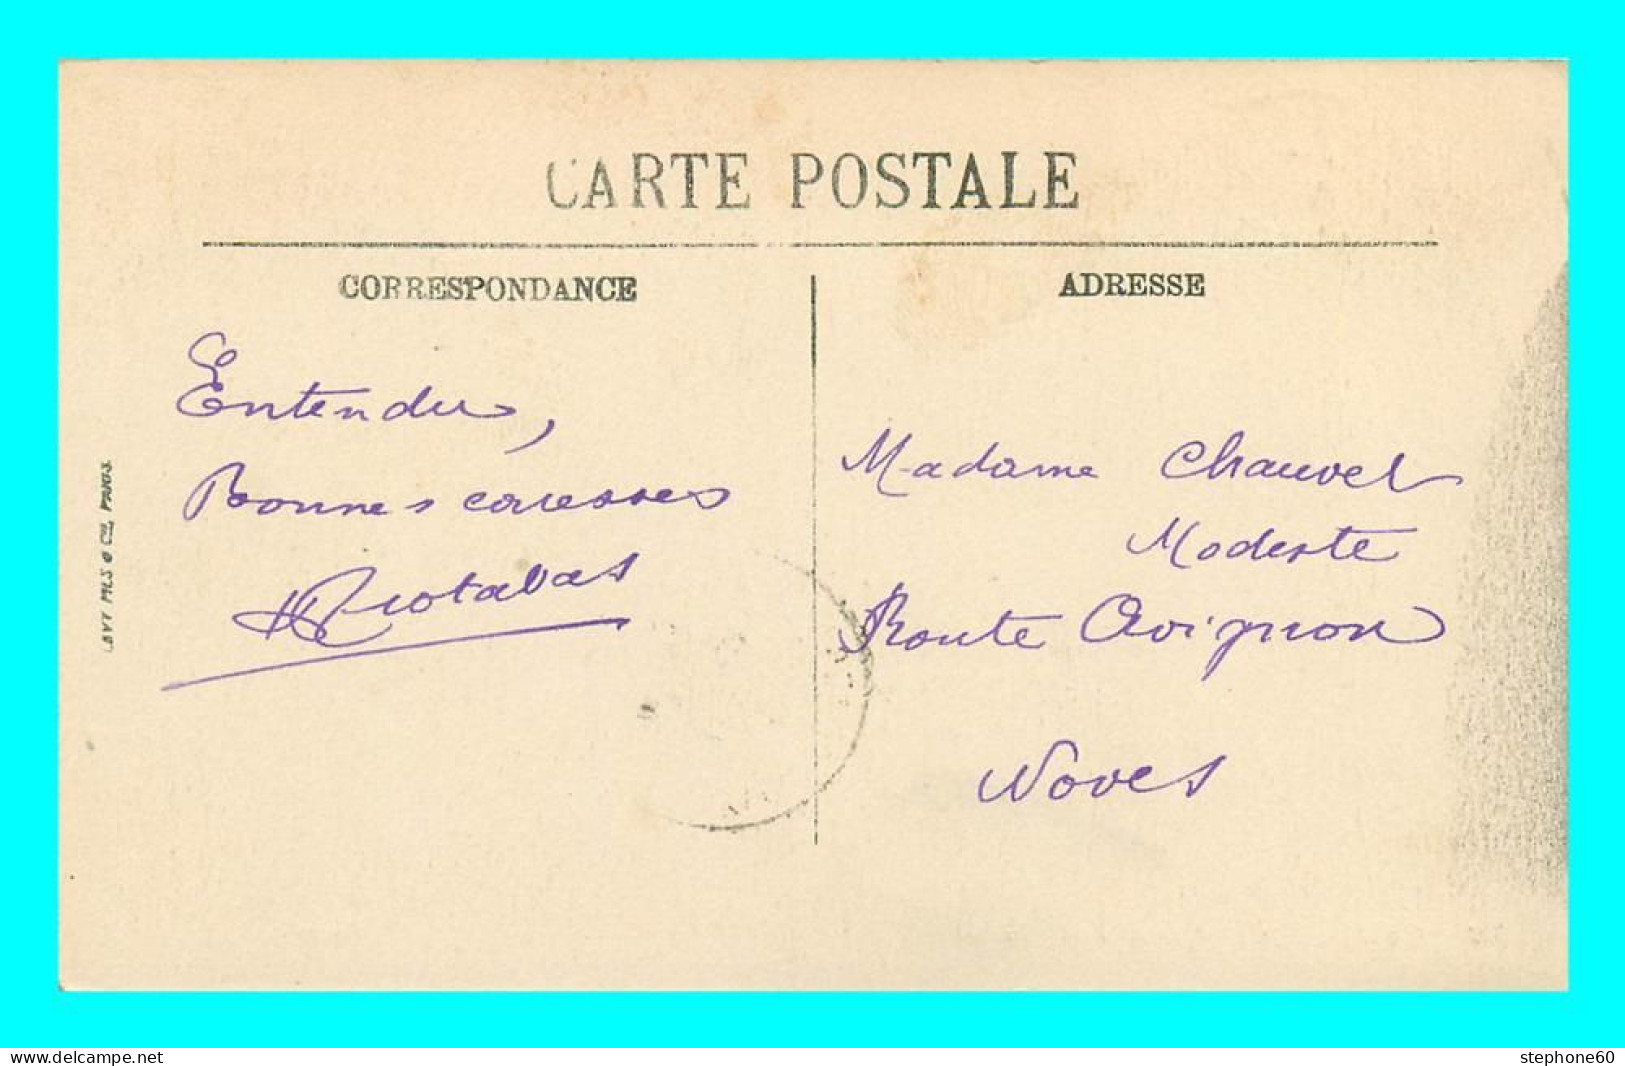 CARTE POSTALE
CORRESPONDANCE
ADRESSE
Entendu,
Bonnes caresses
Madame Chauvel
Modeste
Route Avignon
Noves
LÉVY FILS & Cie, PARIS.
www.delcampe.net
stephone60